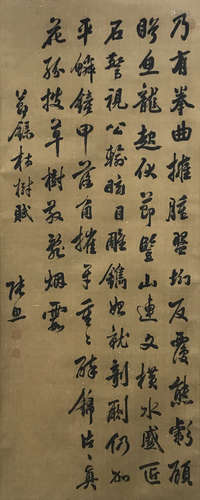 乃有拳曲擁腫盤坳反覆熊彪顧
盼魚龍起伏節豎山連文橫水蹙匠
石驚視公輸眩目雕鐫始就剞劂仍加
平鱗鏟甲落角摧牙重々碎錦片々真
花紛披草樹散亂烟霞
節錄枯樹賦
張照